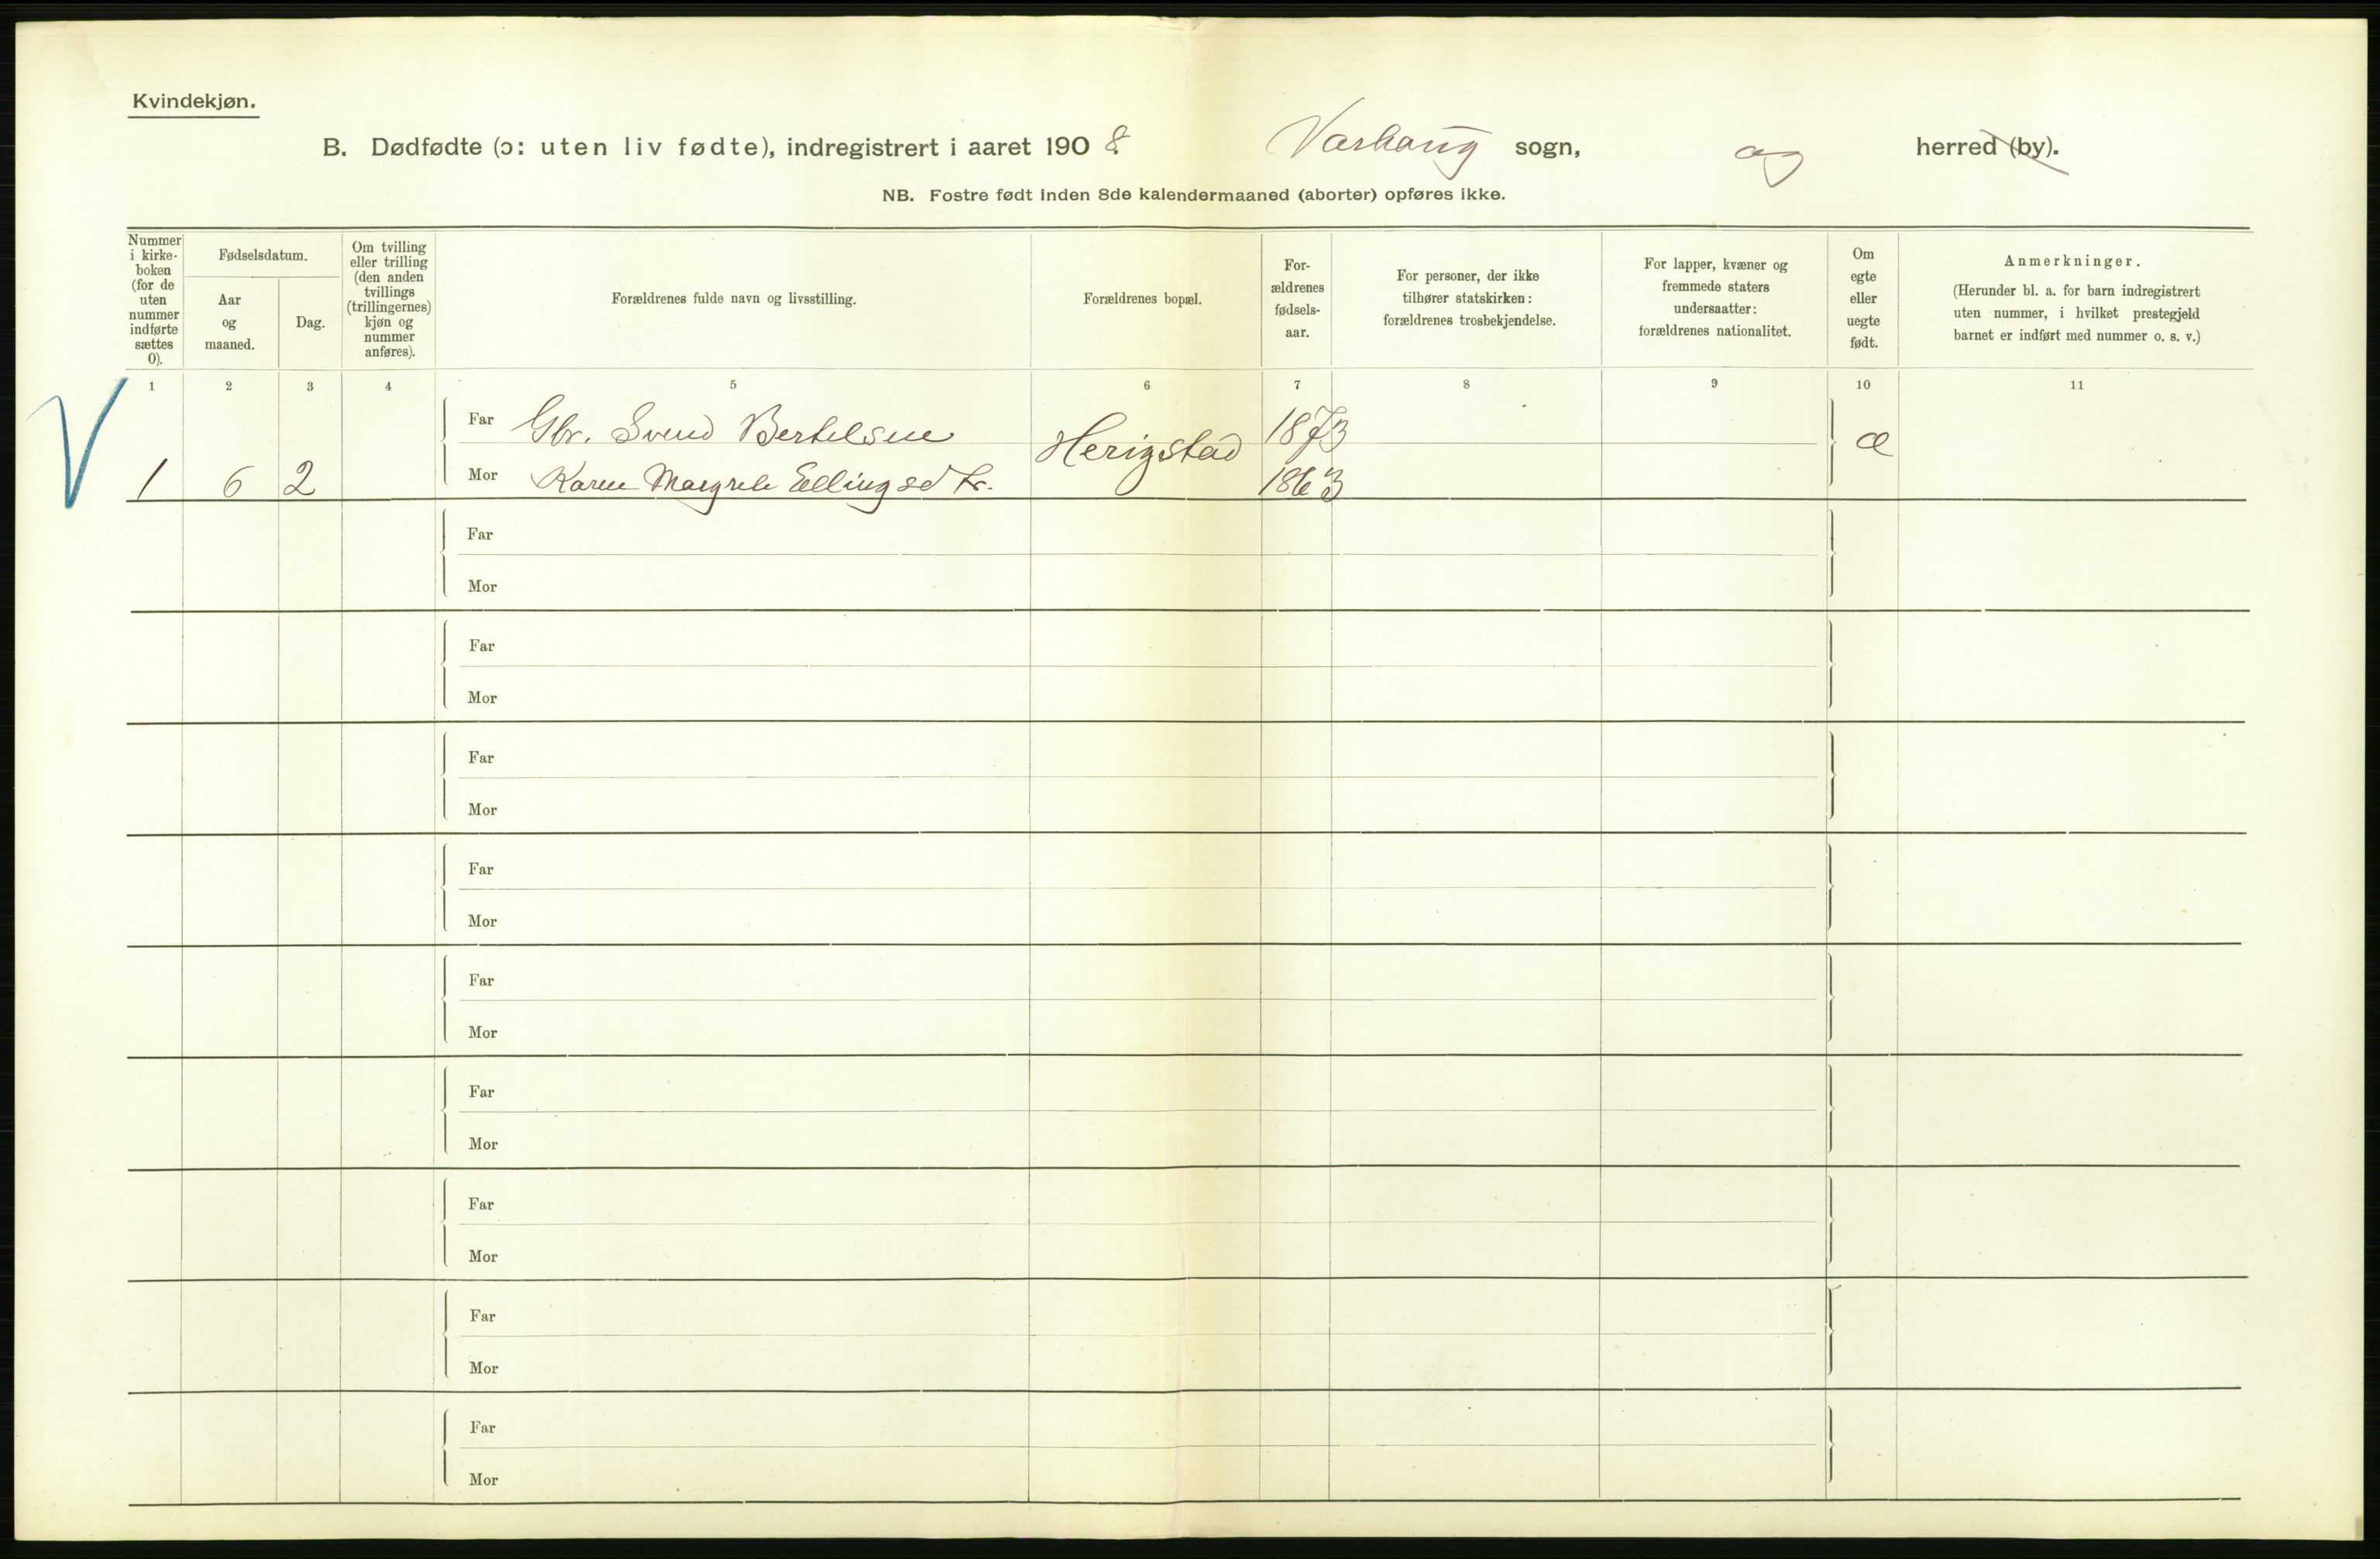 Kvindekjøn.
B. Dødfødte (ɔ: uten liv fødte), indregistrert i aaret 1908. Varhaug sogn, og herred (by).
NB. Fostre født inden 8de kalendermaaned (aborter) opføres ikke.
Nummer i kirke-boken (for de uten nummer indførte sættes 0).
Fødselsdatum.
Aar og maaned.
Dag.
Om tvilling eller trilling (den anden tvillings (trillingernes) kjøn og nummer anføres).
Forældrenes fulde navn og livsstilling.
Forældrenes bopæl.
For-ældrenes fødsels-aar.
For personer, der ikke tilhører statskirken: forældrenes trosbekjendelse.
For lapper, kvæner og fremmede staters undersaatter: forældrenes nationalitet.
Om egte eller uegte født.
Anmerkninger.
(Herunder bl. a. for barn indregistrert uten nummer, i hvilket prestegjeld barnet er indført med nummer o. s. v.)
1 2 3 4 5 6 7 8 9 10 11
V
Far Gbr. Svend Bertelsen Herigstad 1873 æ
1 6 2 Mor Karen Margrete Ellingsdtr. 1863
Far
Mor
Far
Mor
Far
Mor
Far
Mor
Far
Mor
Far
Mor
Far
Mor
Far
Mor
Far
Mor